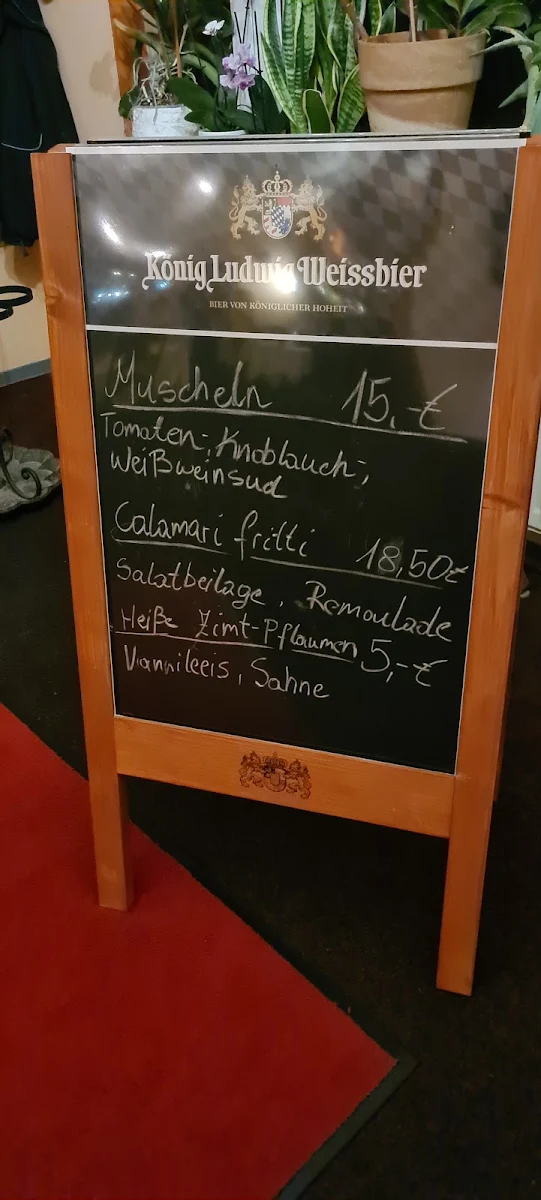 König Ludwig Weissbier
BIER VON KÖNIGLICHER HOHEIT
Muscheln 15,-€
Tomaten-, Knoblauch-,
Weißweinsud
Calamari fritti 18,50€
Salatbeilage, Remoulade
Heiße Zimt-Pflaumen 5,-€
Vannileeis, Sahne